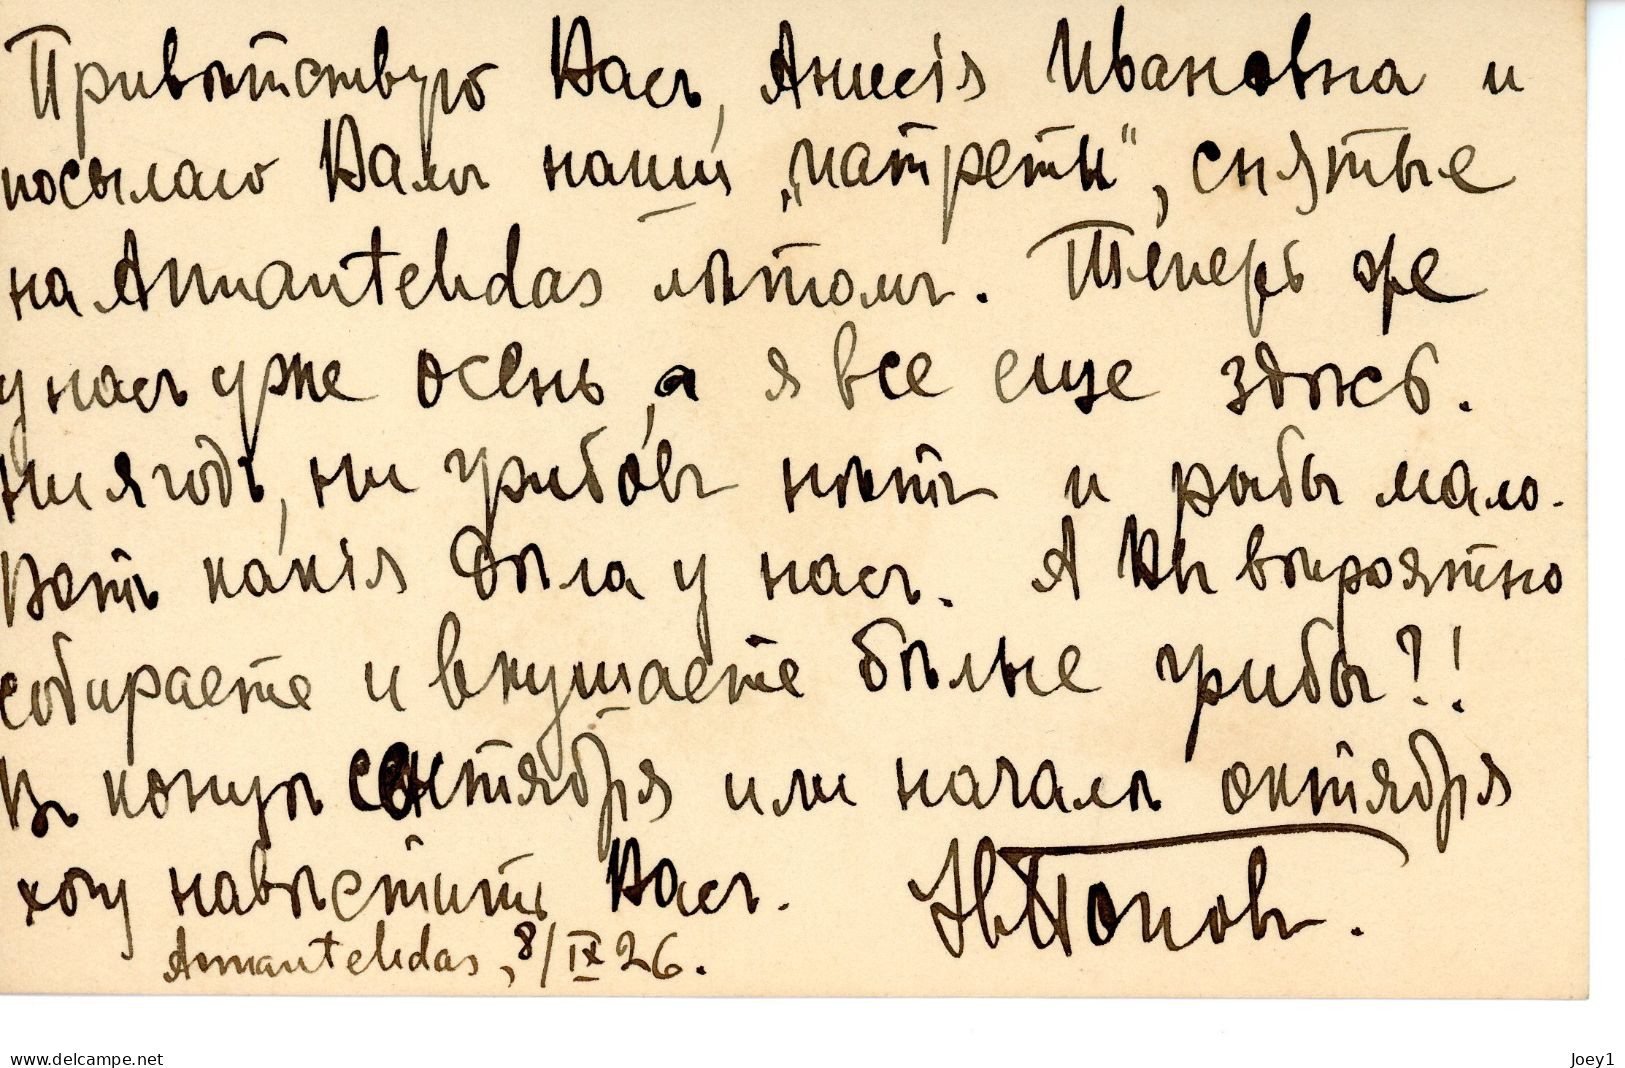 Привѣтствую Васъ, Анисія Ивановна и
посылаю Вамъ наши „патреты“, снятые
на Annantehdas лѣтомъ. Теперь же
у насъ уже осень, а я все еще здѣсь.
Ни ягодъ, ни грибовъ нѣтъ и рыбы мало.
Вотъ какія дѣла у насъ. А Вы вѣроятно
собираете и вкушаете бѣлые грибы?!
Въ концѣ сентября или началѣ октября
хочу навѣстить Васъ. Ив Поповъ.
Annantehdas, 8/IX 26.
www.delcampe.net
Joey1